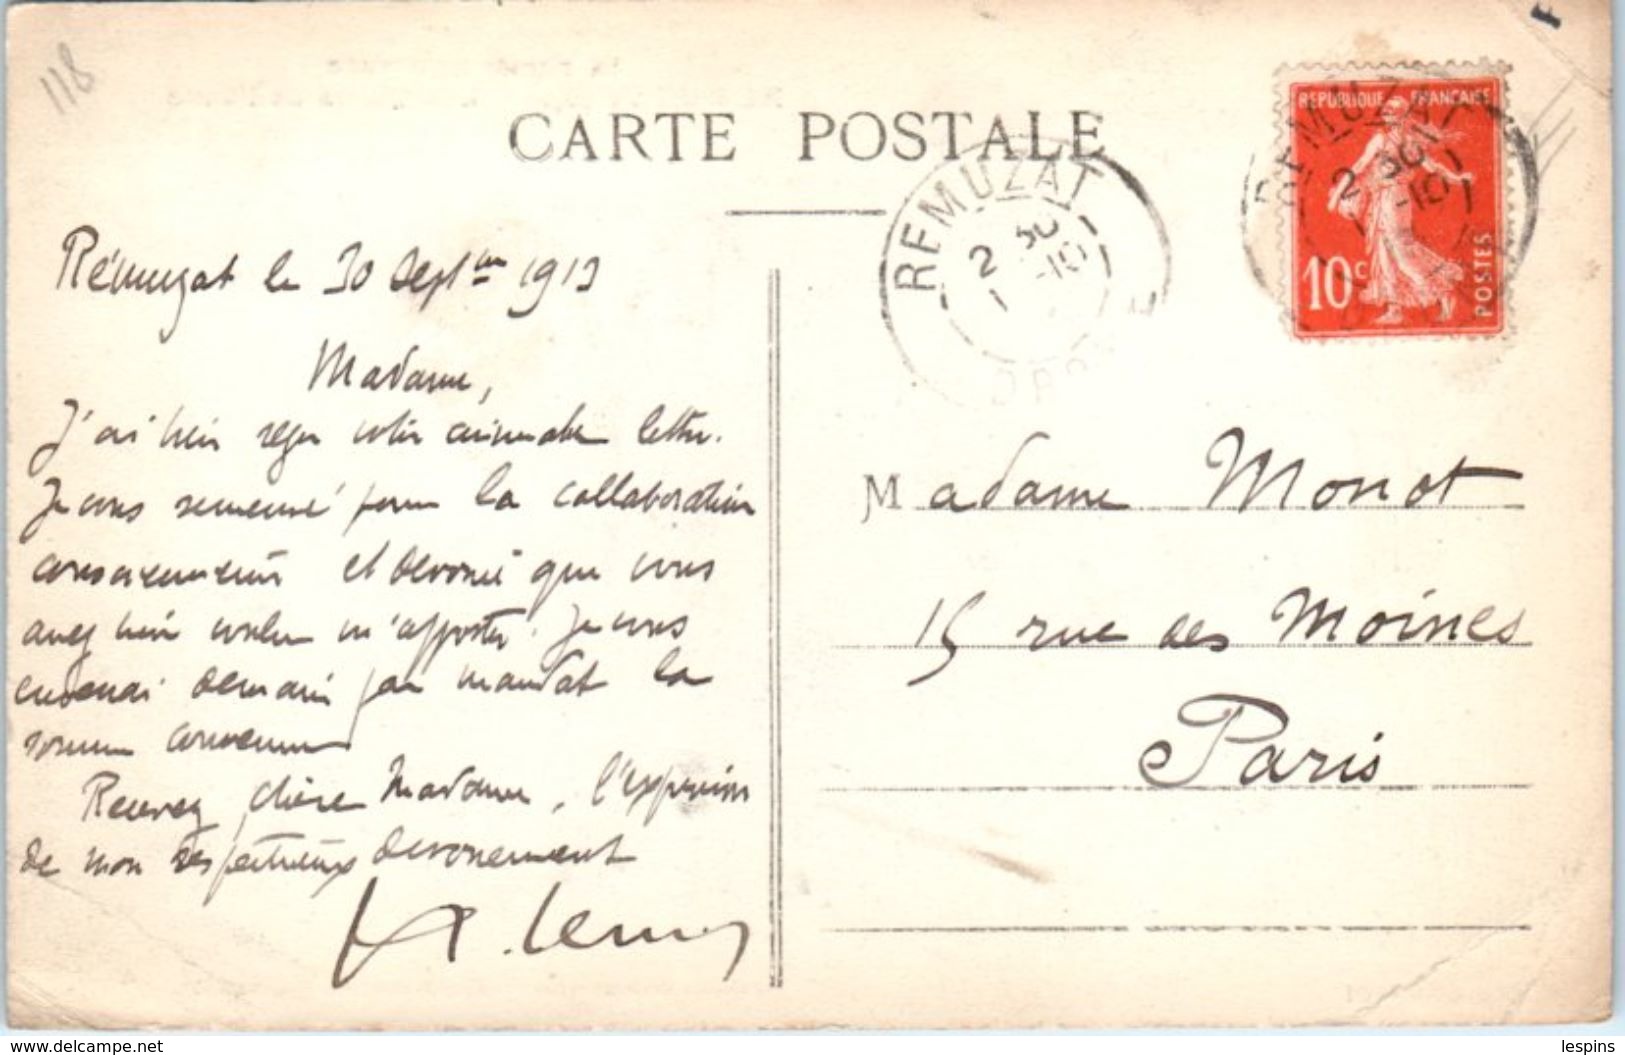 118
CARTE POSTALE
REPUBLIQUE FRANÇAISE
10c
POSTES
REMUZAT
2 30
1 -10
REMUZAT
2 30
1 -10
DRO
Rémuzat le 30 Sept.bre 1913
Madame,
J'ai bien reçu votre aimable lettre.
Je vous remercie pour la collaboration
consciencieuse et dévouée que vous
avez bien voulu m'apporter. Je vous
enverrai demain par mandat la
somme convenue
Recevez, chère Madame, l'expression
de mon respectueux dévouement
Madame Monot
15 rue des Moines
Paris
www.delcampe.net
lespins